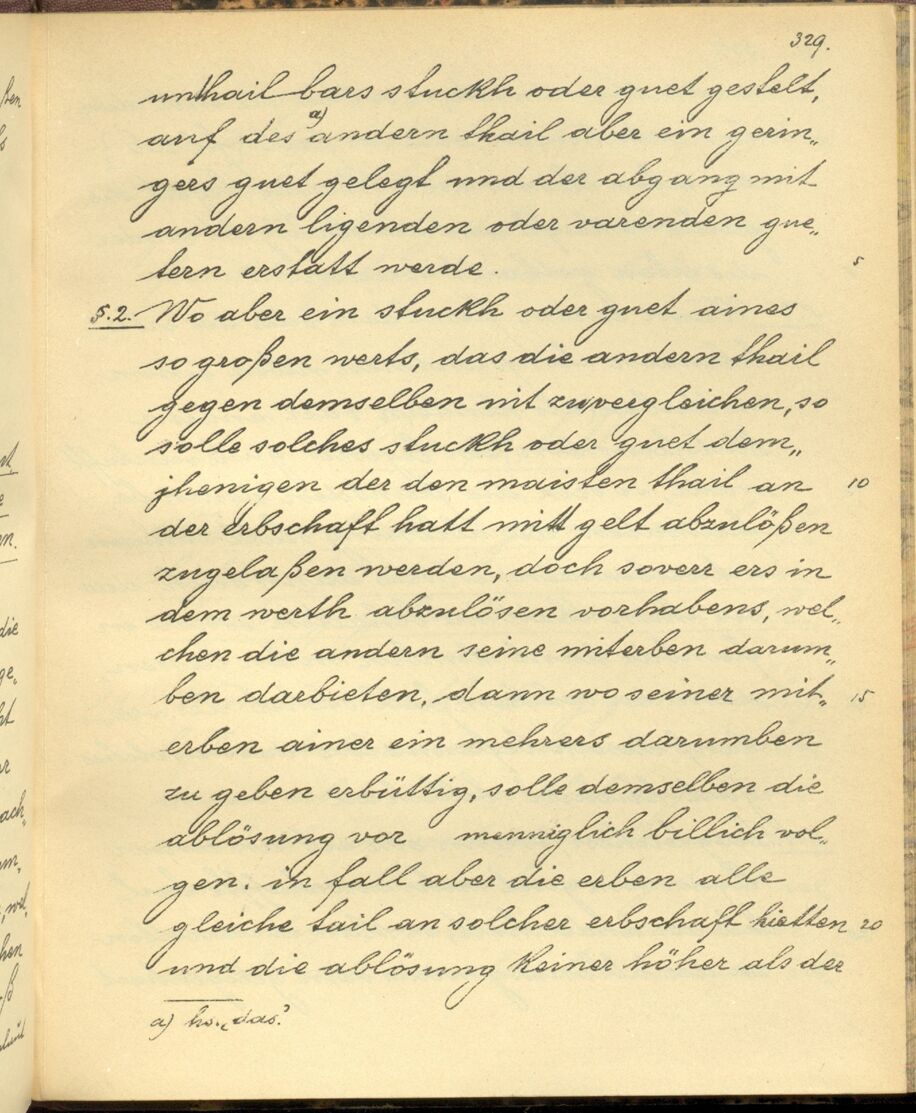 329.
unthailbars stuckh oder guet gestelt,
auf des a) andern thail aber ein gerin„
gers guet gelegt und der abgang mit
andern ligenden oder varenden gue„
tern erstatt werde. 5
§.2. Wo aber ein stuckh oder guet aines
so großen werts, das die andern thail
gegen demselben nit zuvergleichen, so
solle solches stuckh oder guet dem„
jhenigen der den maisten thail an 10
der erbschaft hatt mitt gelt abzulößen
zugelaßen werden, doch soverr ers in
dem werth abzulösen vorhabens, wel„
chen die andern seine miterben darum„
ben darbieten, dann wo seiner mit„ 15
erben ainer ein mehrers darumben
zu geben erbüttig, solle demselben die
ablösung vor menniglich billich vol„
gen. in fall aber die erben alle
gleiche tail an solcher erbschaft hietten 20
und die ablösung keiner höher als der
a) hs. „das“